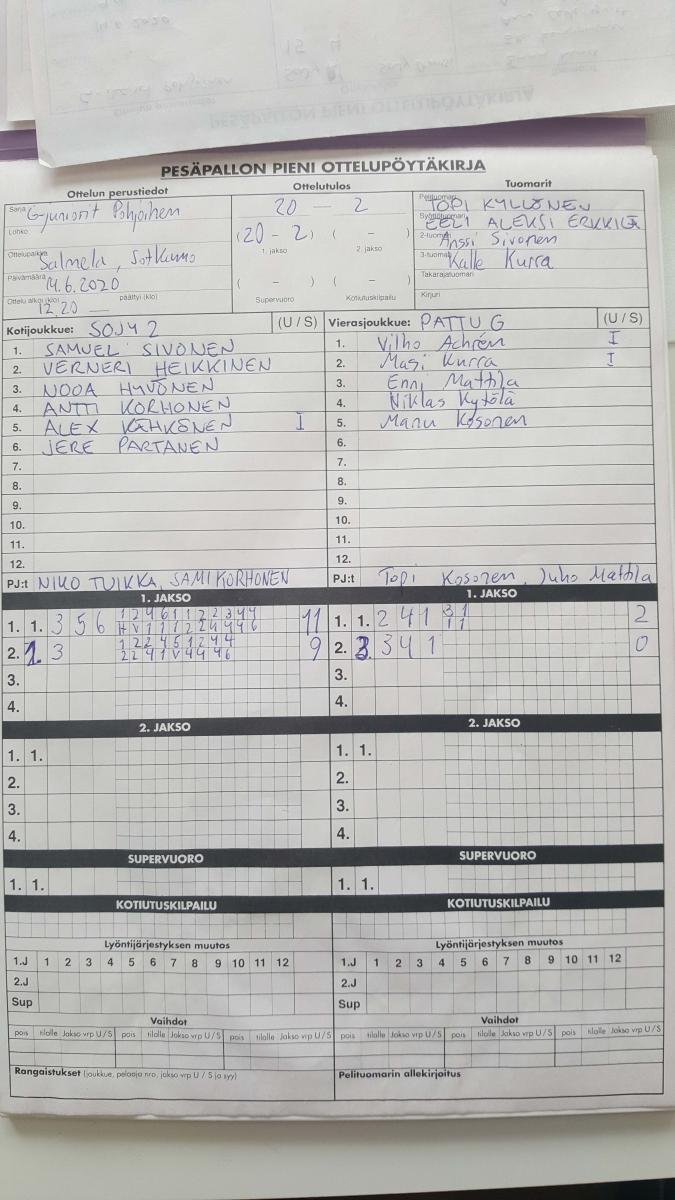 PESÄPALLON PIENI OTTELUPÖYTÄKIRJA
Ottelun perustiedot
Ottelutulos
Tuomarit
Sarja G-juniorit Pohjoinen
Lohko
Ottelupaikka Salmela, Sotkamo
Päivämäärä 14.6.2020
Ottelu alkoi (klo) 12.20 päättyi (klo) —
20 — 2
(20 - 2) ( - )
1. jakso 2. jakso
( - ) ( - )
Supervuoro Kotiutuskilpailu
Pelituomari TOPI KYLLÖNEN
Syöttötuomari EELI ALEKSI ERKKILÄ
2-tuomari Anssi Sivonen
3-tuomari Kalle Kurra
Takarajatuomari
Kirjuri
Kotijoukkue: SOJY 2 (U / S)
1. SAMUEL SIVONEN
2. VERNERI HEIKKINEN
3. NOOA HYVÖNEN
4. ANTTI KORHONEN
5. ALEX KÄHKÖNEN I
6. JERE PARTANEN
7.
8.
9.
10.
11.
12.
PJ:t NIKO TUIKKA, SAMI KORHONEN
Vierasjoukkue: PATTU G (U / S)
1. Vilho Achrén I
2. Masi Kurra I
3. Enni Mattila
4. Niklas Kytölä
5. Manu Kosonen
6.
7.
8.
9.
10.
11.
12.
PJ:t Topi Kosonen, Juho Mattila
1. JAKSO
1. 1. 3 5 6 11
2. 1. 3 9
3.
4.
2. JAKSO
1. 1.
2.
3.
4.
SUPERVUORO
1. 1.
KOTIUTUSKILPAILU
Lyöntijärjestyksen muutos
1.J 1 2 3 4 5 6 7 8 9 10 11 12
2.J
Sup
Vaihdot
pois tilalle Jakso vrp U / S pois tilalle Jakso vrp U / S pois tilalle Jakso vrp U / S
Rangaistukset (joukkue, pelaaja nro, jakso vrp U / S ja syy)
1. JAKSO
1. 1. 2 4 1 3 1 2
1 1
2. 3. 3 4 1 0
3.
4.
2. JAKSO
1. 1.
2.
3.
4.
SUPERVUORO
1. 1.
KOTIUTUSKILPAILU
Lyöntijärjestyksen muutos
1.J 1 2 3 4 5 6 7 8 9 10 11 12
2.J
Sup
Vaihdot
pois tilalle Jakso vrp U / S pois tilalle Jakso vrp U / S pois tilalle Jakso vrp U / S
Pelituomarin allekirjoitus